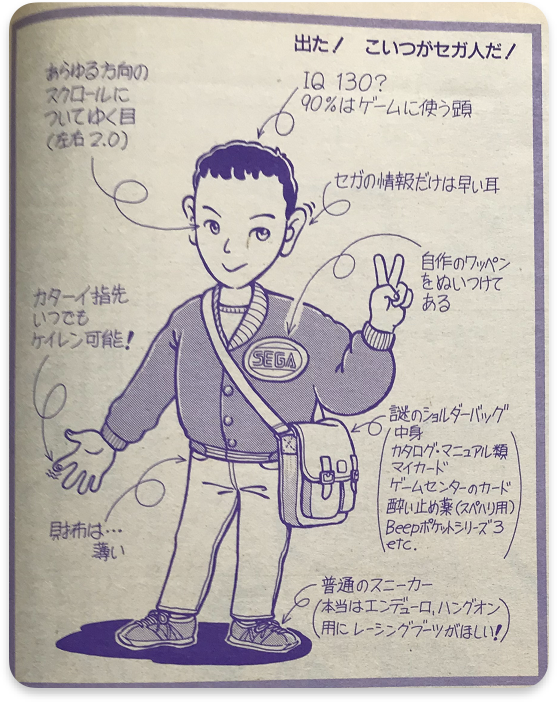 出た！ こいつがセガ人だ！
あらゆる方向の
スクロールに
ついてゆく目
(左右2.0)
IQ 130?
90%はゲームに使う頭
セガの情報だけは早い耳
自作のワッペン
をぬいつけて
ある
カターイ指先
いつでも
ケイレン可能！
SEGA
謎のショルダーバッグ
中身
カタログ・マニュアル類
マイカード
ゲームセンターのカード
酔い止め薬(スペハリ用)
Beepポケットシリーズ3
etc.
財布は…
薄い
普通のスニーカー
(本当はエンデューロ,ハングオン
用にレーシングブーツがほしい！)